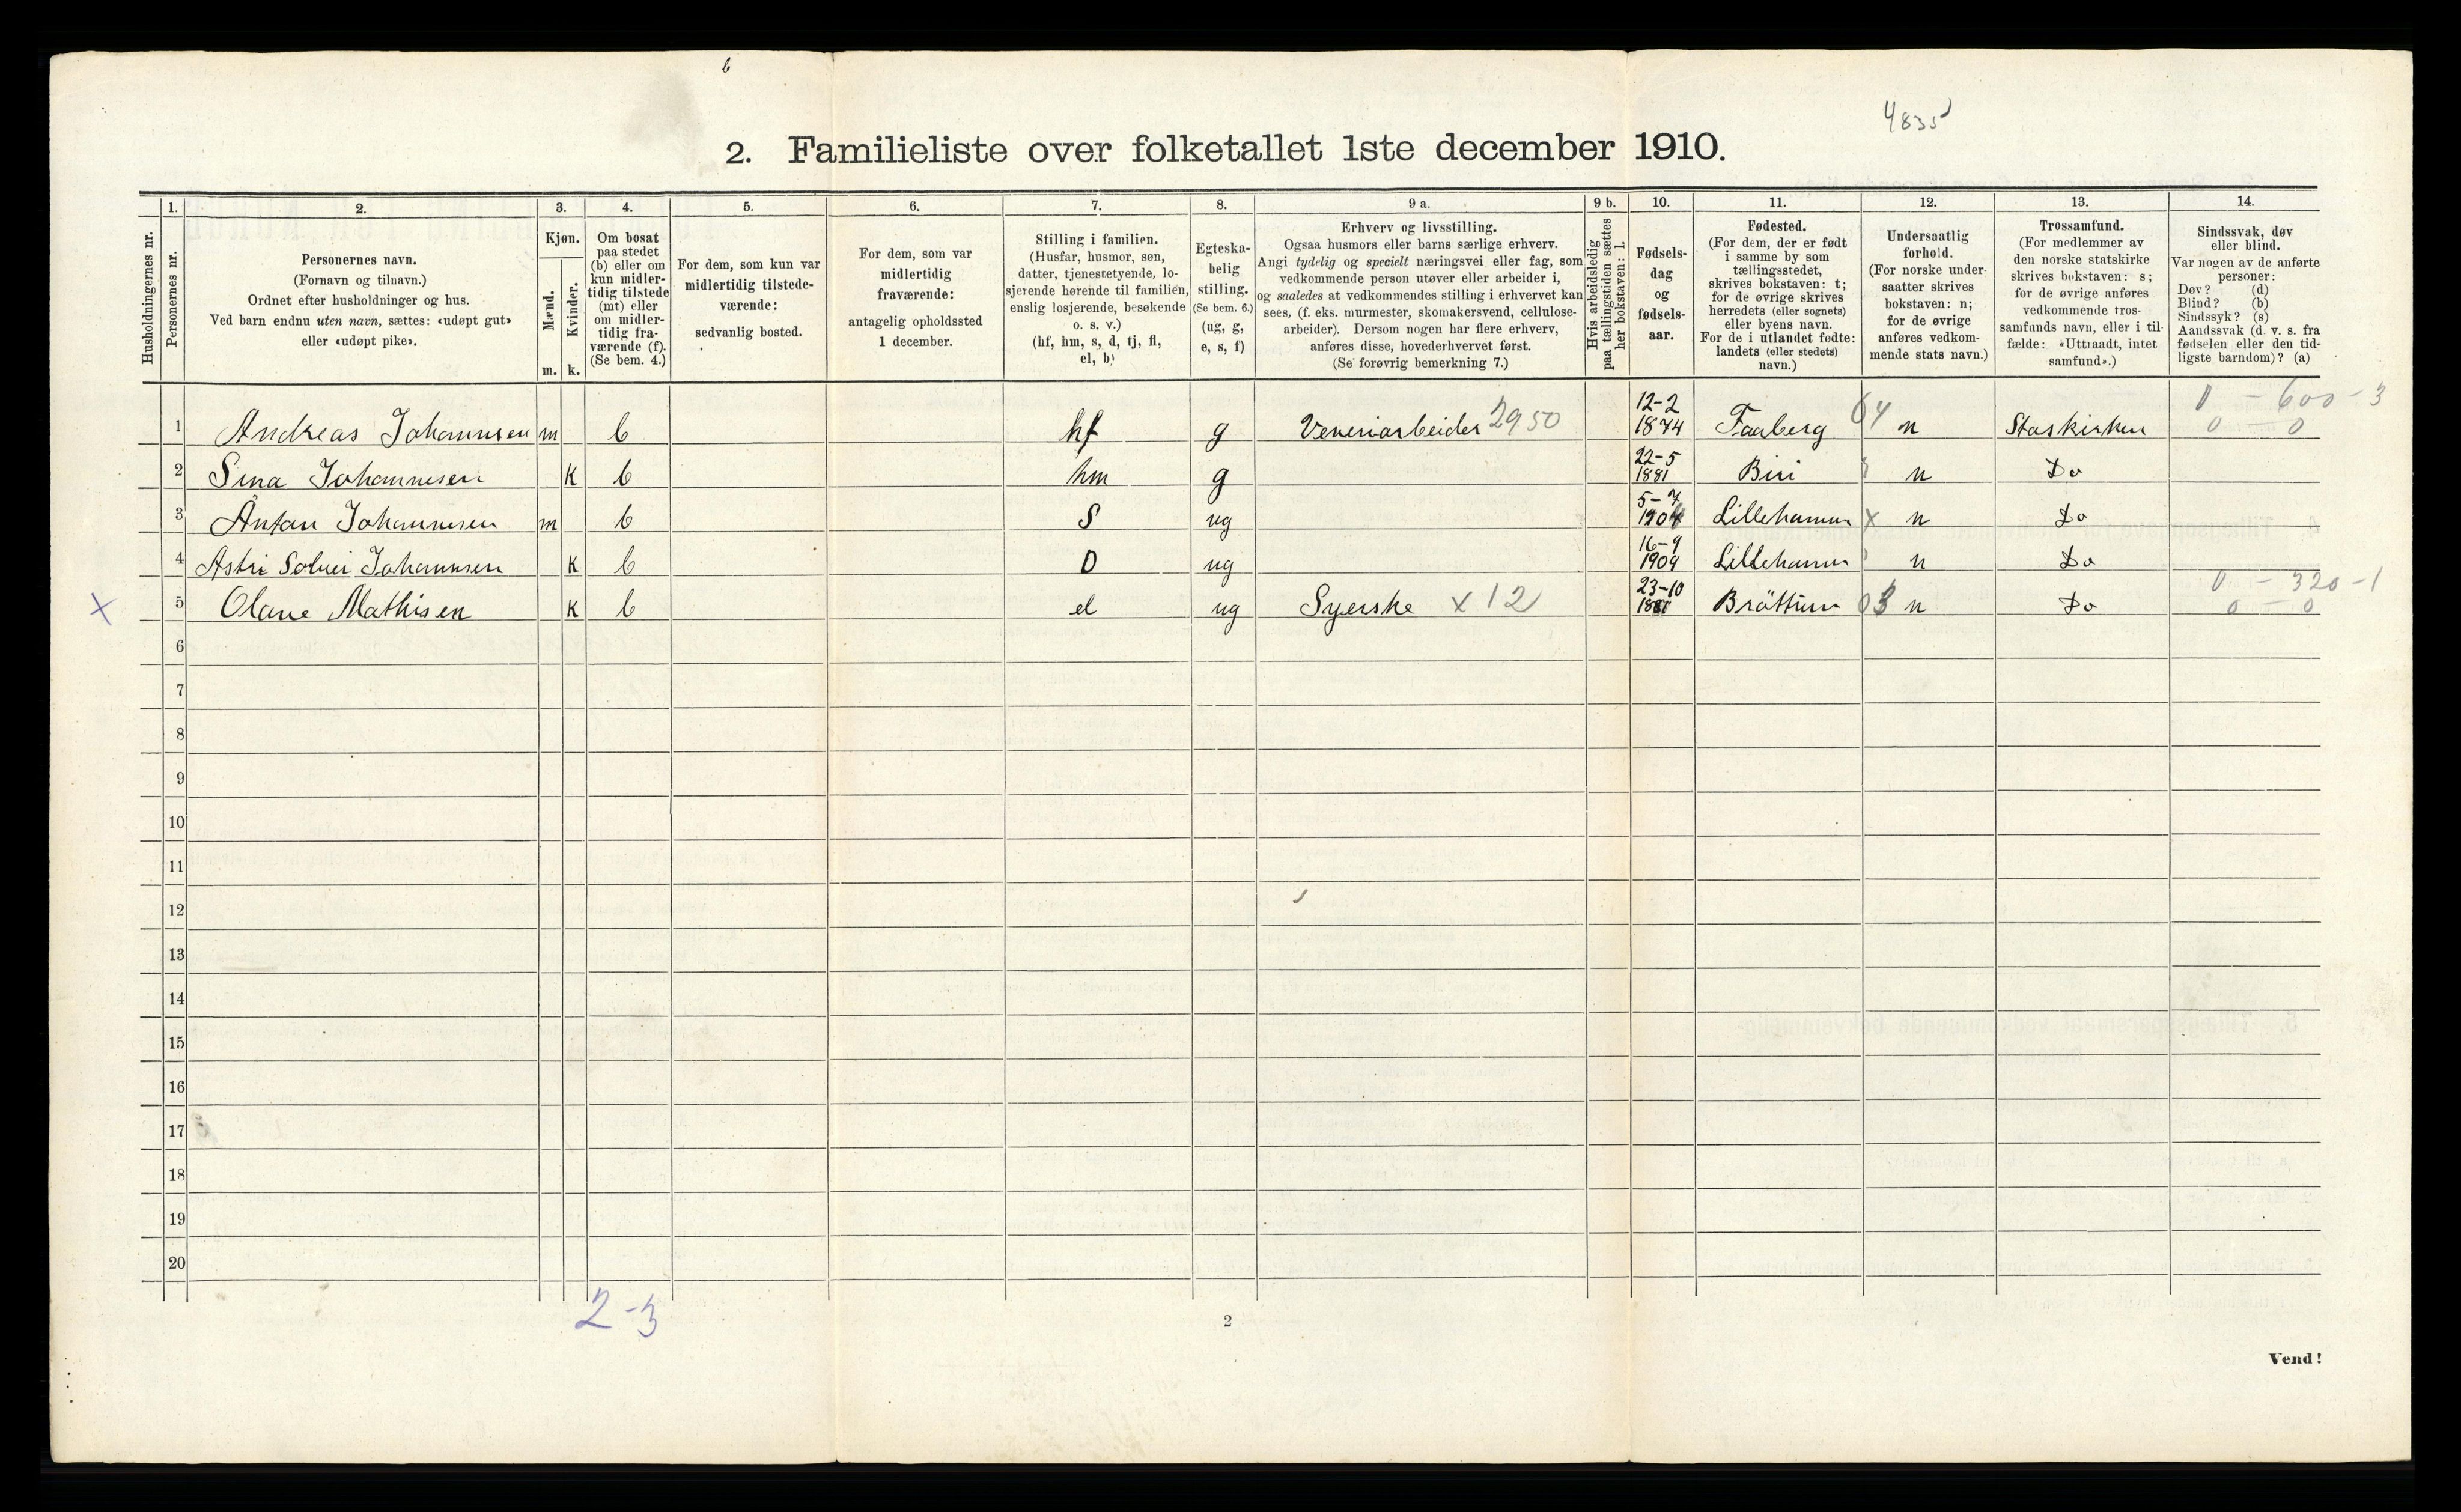 6
4835
2. Familieliste over folketallet 1ste december 1910.
Husholdningernes nr.
1.
Personernes nr.
2.
Personernes navn.
(Fornavn og tilnavn.)
Ordnet efter husholdninger og hus.
Ved barn endnu uten navn, sættes: «udøpt gut»
eller «udøpt pike».
3.
Kjøn.
Mænd.
Kvinder.
m. k.
4.
Om bosat
paa stedet
(b) eller om
kun midler-
tidig tilstede
(mt) eller
om midler-
tidig fra-
værende (f).
(Se bem. 4.)
5.
For dem, som kun var
midlertidig tilstede-
værende:
sedvanlig bosted.
6.
For dem, som var
midlertidig
fraværende:
antagelig opholdssted
1 december.
7.
Stilling i familien.
(Husfar, husmor, søn,
datter, tjenestetyende, lo-
sjerende hørende til familien,
enslig losjerende, besøkende
o. s. v.)
(hf, hm, s, d, tj, fl,
el, b)
8.
Egteska-
belig
stilling.
(Se bem. 6.)
(ug, g,
e, s, f)
9 a.
Erhverv og livsstilling.
Ogsaa husmors eller barns særlige erhverv.
Angi tydelig og specielt næringsvei eller fag, som
vedkommende person utøver eller arbeider i,
og saaledes at vedkommendes stilling i erhvervet kan
sees, (f. eks. murmester, skomakersvend, cellulose-
arbeider). Dersom nogen har flere erhverv,
anføres disse, hovederhvervet først.
(Se forøvrig bemerkning 7.)
9 b.
Hvis arbeidsledig
paa tællingstiden sættes
her bokstaven: l.
10.
Fødsels-
dag
og
fødsels-
aar.
11.
Fødested.
(For dem, der er født
i samme by som
tællingsstedet,
skrives bokstaven: t;
for de øvrige skrives
herredets (eller sognets)
eller byens navn.
For de i utlandet fødte:
landets (eller stedets)
navn.)
12.
Undersaatlig
forhold.
(For norske under-
saatter skrives
bokstaven: n;
for de øvrige
anføres vedkom-
mende stats navn.)
13.
Trossamfund.
(For medlemmer av
den norske statskirke
skrives bokstaven: s;
for de øvrige anføres
vedkommende tros-
samfunds navn, eller i til-
fælde: «Uttraadt, intet
samfund».)
14.
Sindssvak, døv
eller blind.
Var nogen av de anførte
personer:
Døv? (d)
Blind? (b)
Sindssyk? (s)
Aandssvak (d. v. s. fra
fødselen eller den tid-
ligste barndom)? (a)
0 – 600 – 3
1 Andreas Johannesen m b hf g Veveriarbeider 2950 12-2 1874 Faaberg 04 n Staskirken 0 – 0
2 Sina Johannesen K b hm g 22-5 1881 Biri n Do
3 Antan Johannesen m b S ug 5-7 1904 Lillehamm x n Do
4 Astri Solvei Johannsen K b D ug 16-9 1909 Lillehamm n Do
0 – 320 – 1
x 5 Olane Mathisen K b el ug Syerske x 12 23-10 1881 Bröttum 03 n Do 0 – 0
6
7
8
9
10
11
12
13
14
15
16
17
18
19
20
2-3
2
Vend!